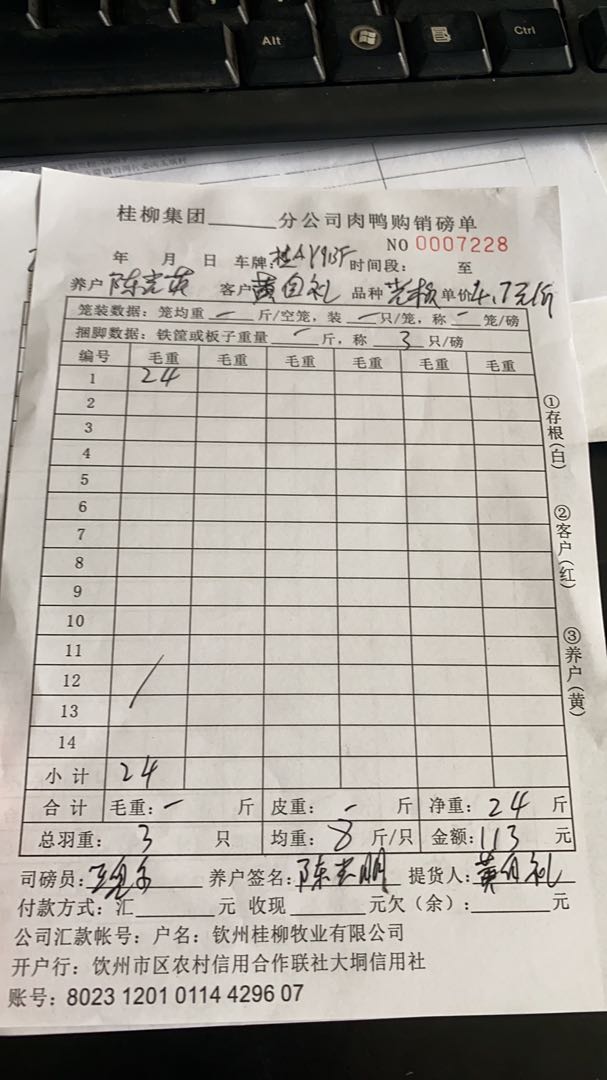 Alt
Ctrl
桂柳集团______分公司肉鸭购销磅单
NO 0007228
年 月 日 车牌: 时间段: 至
养户 陈 客户 黄自礼 品种 单价4.7元/斤
笼装数据: 笼均重 - 斤/空笼, 装 - 只/笼, 称 - 笼/磅
捆脚数据: 铁筐或板子重量 - 斤, 称 3 只/磅
编号 毛重 毛重 毛重 毛重 毛重 毛重
1 24
2
3
4
5
6
7
8
9
10
11
12
13
14
小计 24
合计 毛重: - 斤 皮重: - 斤 净重: 24 斤
总羽重: 3 只 均重: 8 斤/只 金额: 113 元
司磅员: 养户签名: 陈 提货人: 黄自礼
付款方式: 汇______元 收现______元欠(余):______元
公司汇款帐号: 户名: 钦州桂柳牧业有限公司
开户行: 饮州市区农村信用合作联社大垌信用社
账号: 8023 1201 0114 4296 07
①存根(白)
②客户(红)
③养户(黄)